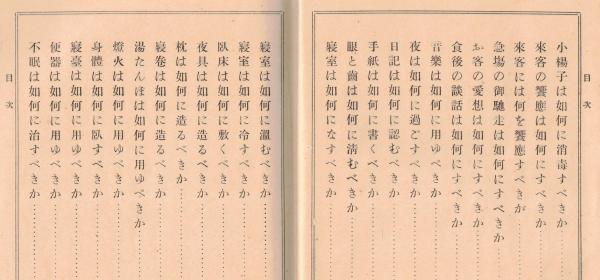 小楊子は如何に消毒すべきか
來客の饗應は如何にすべきか
來客には何を饗應すべきか
急塲の御馳走は如何にすべきか
お客の愛想は如何にすべきか
食後の談話は如何にすべきか
音樂は如何に用ゆべきか
夜は如何に過ごすべきか
日記は如何に認むべきか
手紙は如何に書くべきか
眼と齒は如何に淸むべきか
寢室は如何になすべきか
目次
寢室は如何に溫むべきか
寢室は如何に冷すべきか
臥床は如何に敷くべきか
夜具は如何に造るべきか
枕は如何に造るべきか
寢卷は如何に造るべきか
湯たんぽは如何に用ゆべきか
燈火は如何に用ゆべきか
身體は如何に臥すべきか
寢臺は如何に用ゆべきか
便器は如何に用ゆべきか
不眠は如何に治すべきか
目次